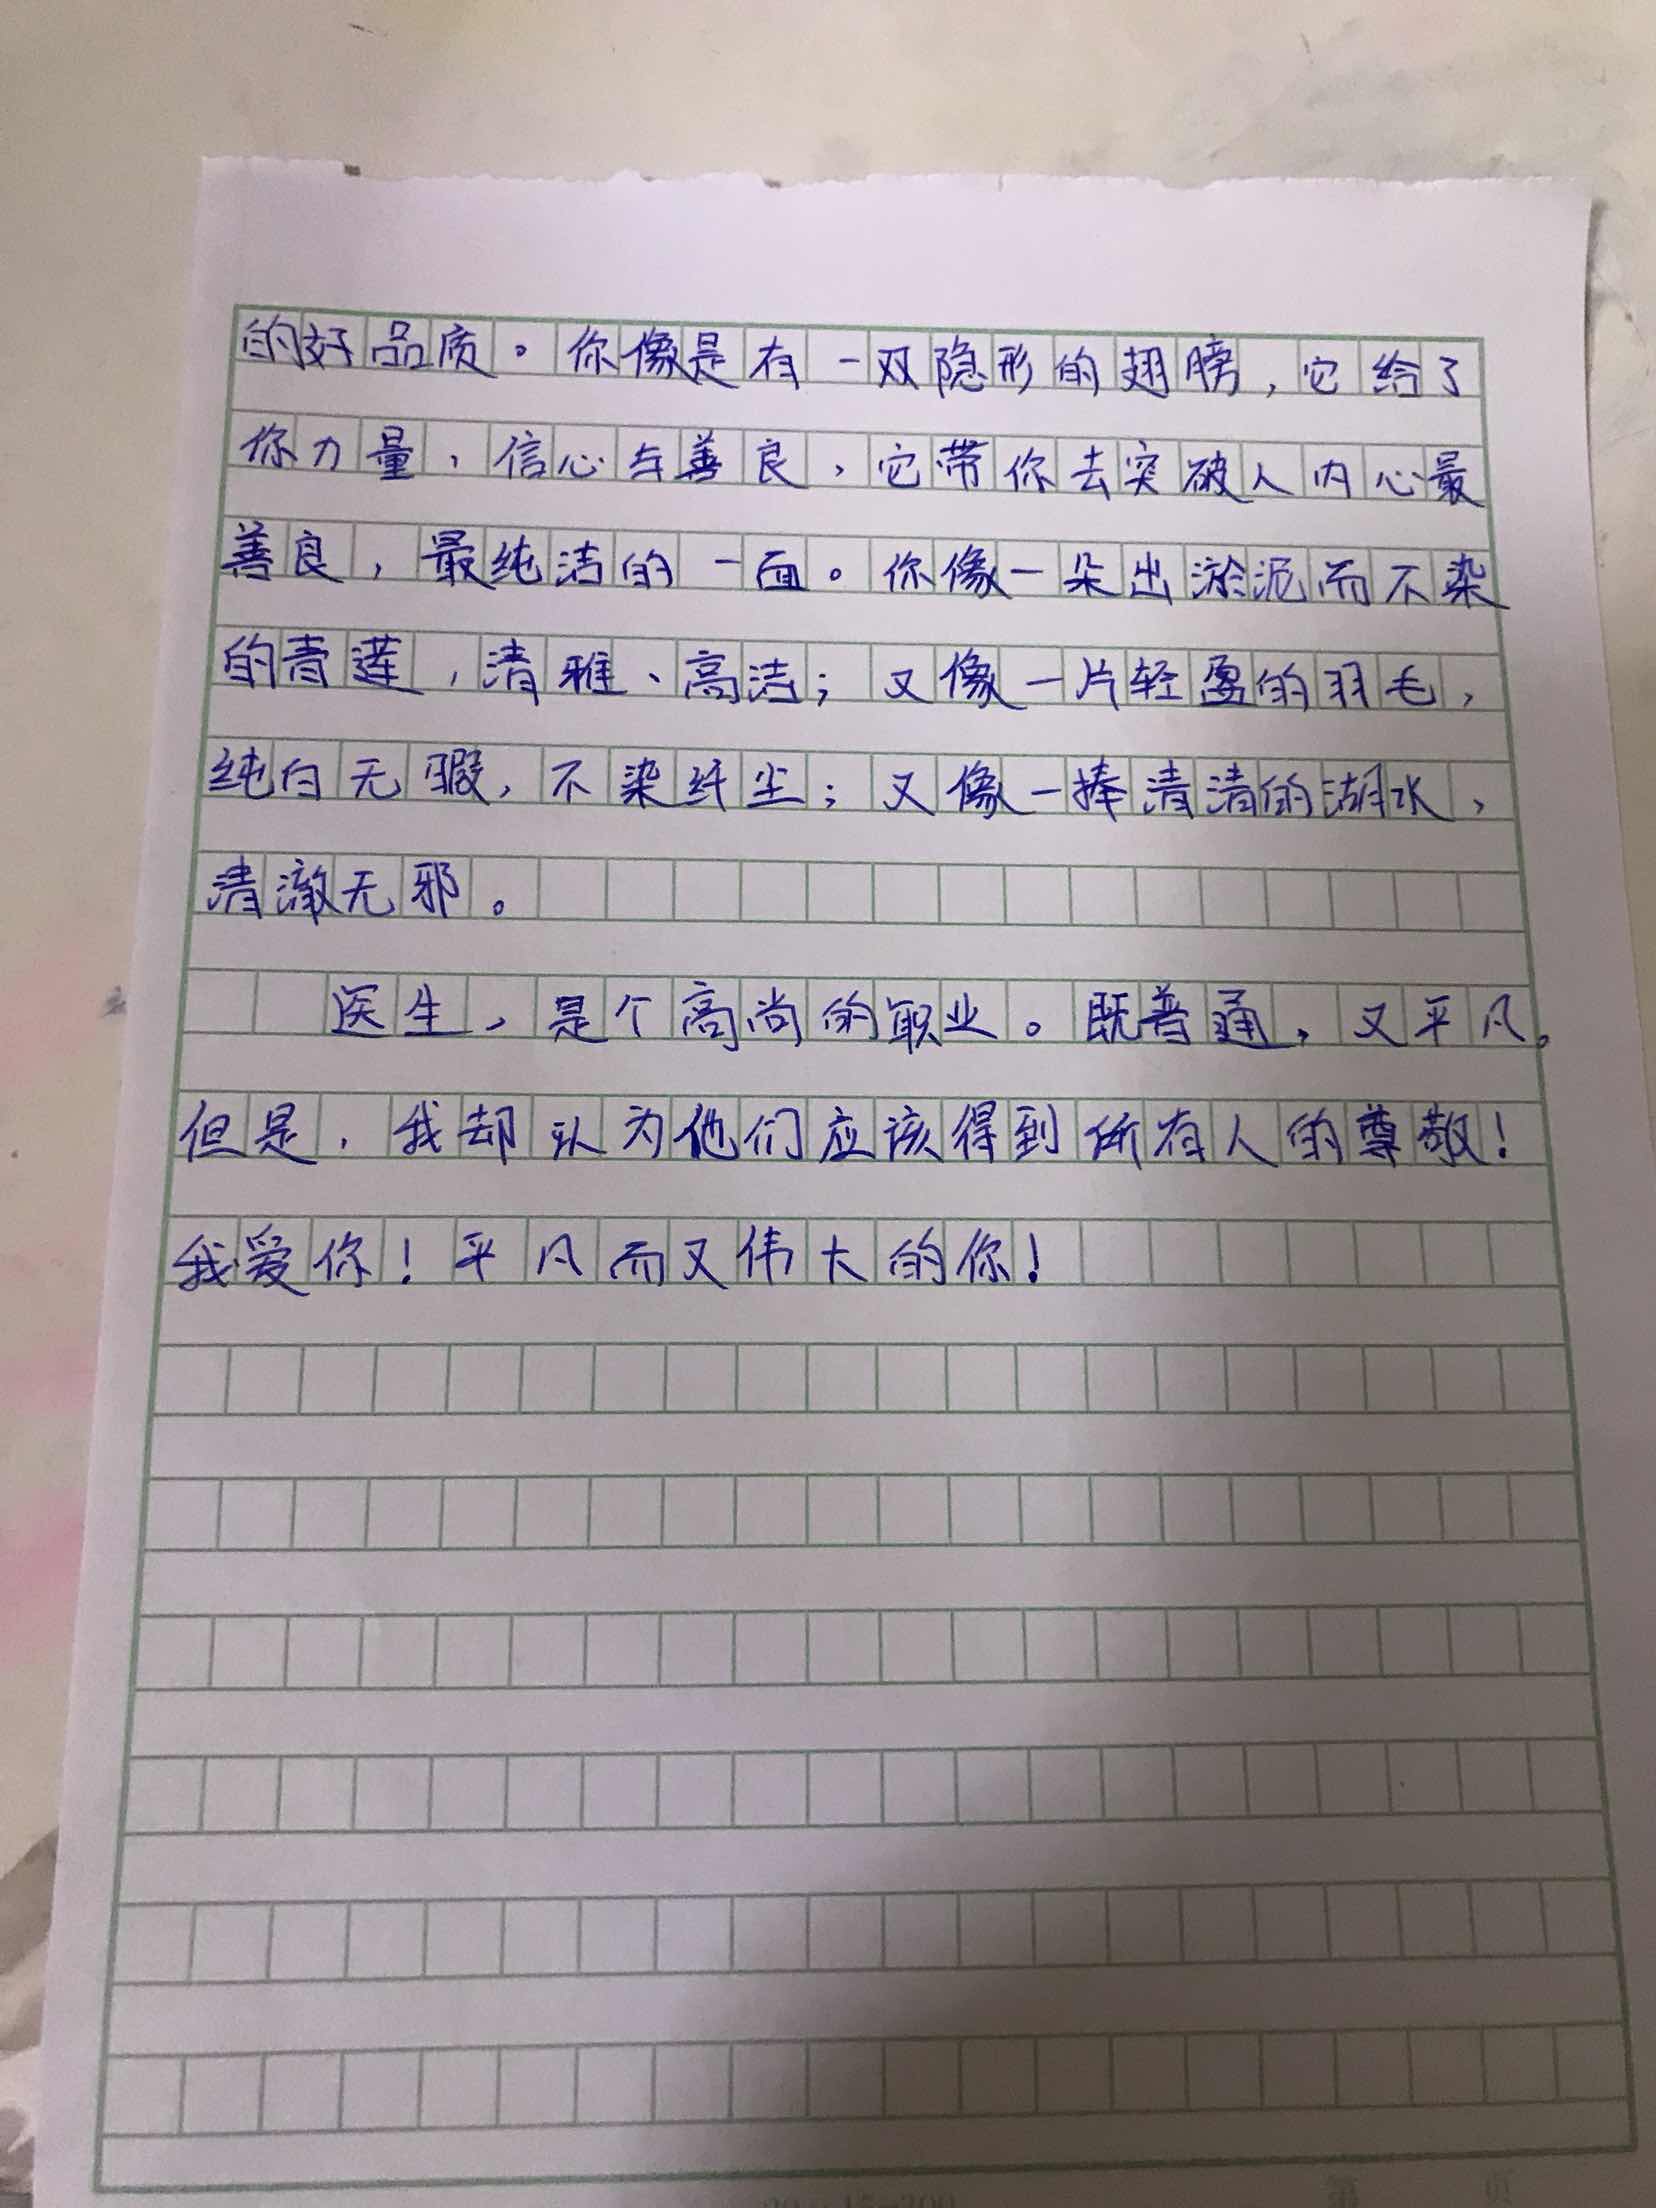 的好品质。你像是有一双隐形的翅膀，它给了
你力量，信心与善良，它带你去突破人内心最
善良，最纯洁的一面。你像一朵出淤泥而不染
的青莲，清雅、高洁；又像一片轻盈的羽毛，
纯白无暇，不染纤尘；又像一捧清清的湖水，
清澈无邪。
医生，是个高尚的职业。既普通，又平凡。
但是，我却认为他们应该得到所有人的尊敬！
我爱你！平凡而又伟大的你！